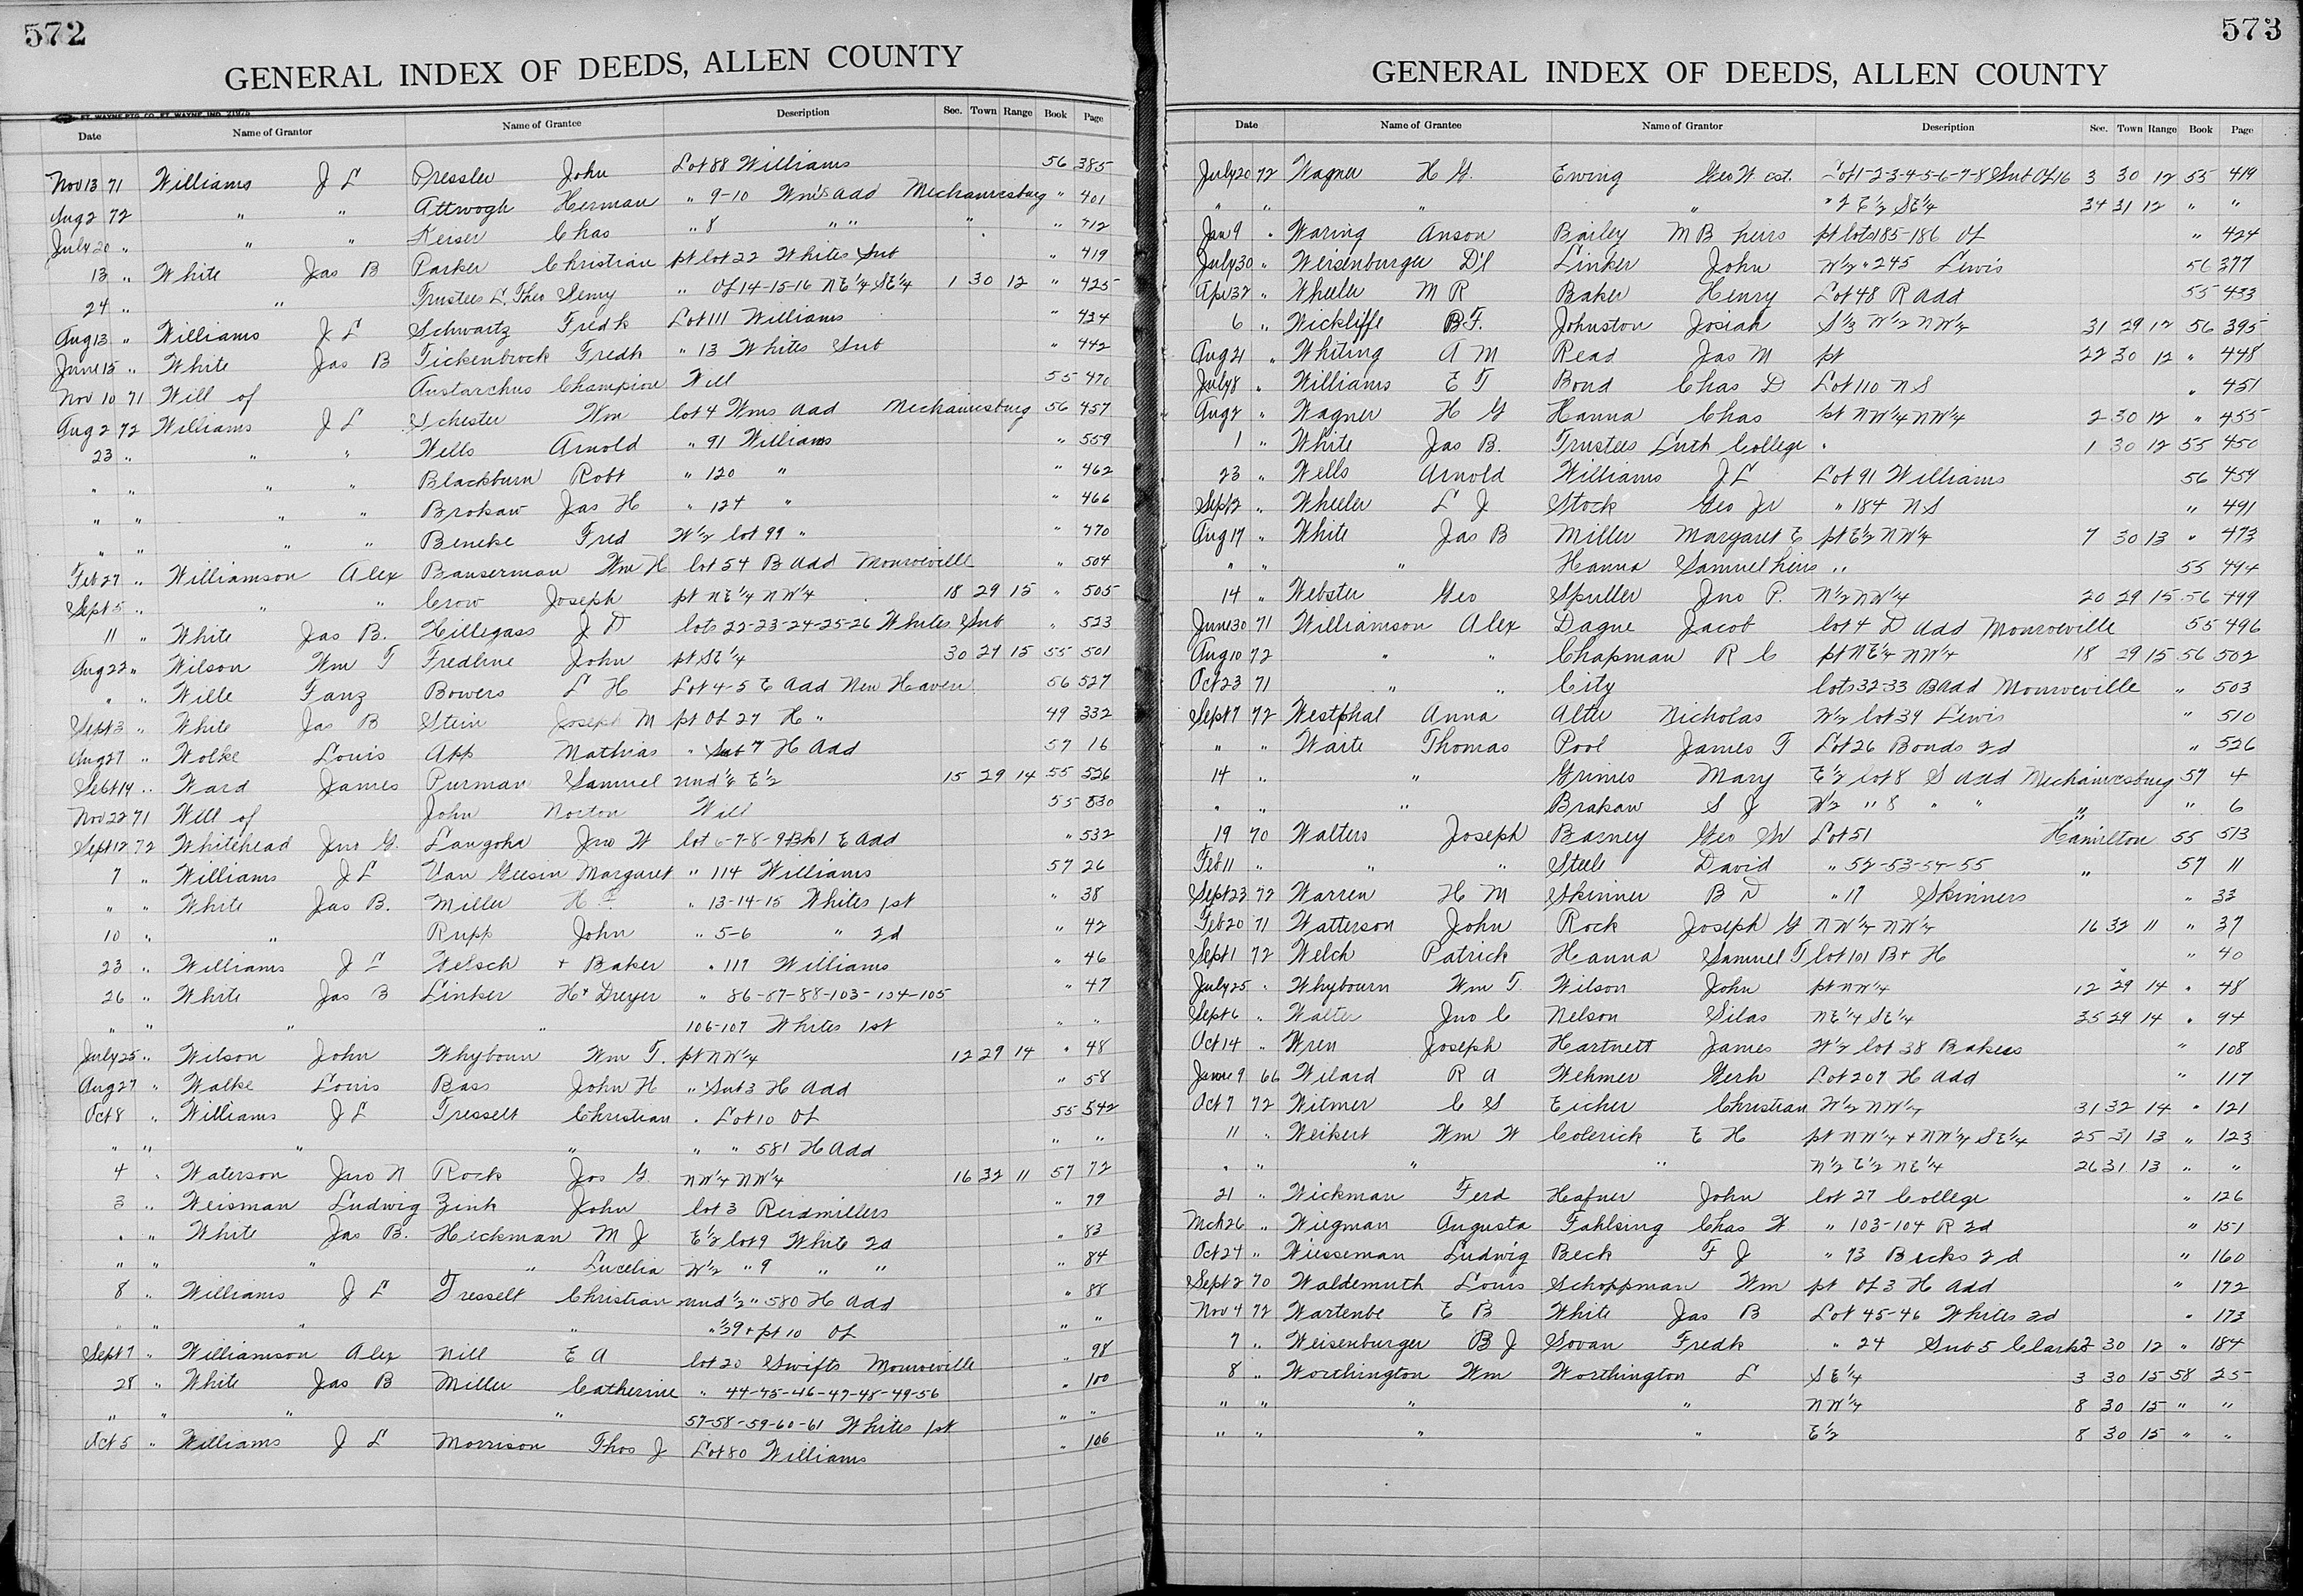 572
GENERAL INDEX OF DEEDS, ALLEN COUNTY
Date Name of Grantor Name of Grantee Description Sec. Town Range Book Page
Nov 13 71 Williams J L Pressler John Lot 88 Williams 56 385
Aug 2 72 " " Attwogh Herman " 9-10 Wm's add Mechanicsburg " 401
July 20 " " " Keiser Chas " 8 " " " " 412
13 " White Jas B Parker Christian pt lot 22 Whites Sub " 419
24 " " Trustees L. Theo Semy " Ol 14-15-16 NE¼ SE¼ 1 30 12 " 425
Aug 13 " Williams J L Schwartz Fredk Lot 111 Williams " 434
June 15 " White Jas B Fickenbrock Fredk " 13 Whites Sub " 442
Nov 10 71 Will of Austarchus Champion Will 55 470
Aug 2 72 Williams J L Schester Wm lot 4 Wms add Mechanicsburg 56 457
23 " " " Wells Arnold " 91 Williams " 559
" " " " Blackburn Robt " 120 " " 462
" " " " Brokaw Jas H " 124 " " 466
" " " " Beneke Fred W½ lot 99 " " 470
Feb 27 " Williamson Alex Bauserman Wm H lot 54 B add Monroeville " 504
Sept 5 " " " Crow Joseph pt NE¼ NW¼ 18 29 15 " 505
11 " White Jas B. Hillegass J D lots 22-23-24-25-26 Whites Sub " 523
Aug 22 " Wilson Wm T Fredline John pt SE¼ 30 29 15 55 501
" " Wille Fanz Bowers L H Lot 4-5 E add New Haven 56 527
Sept 3 " White Jas B Stein Joseph M pt Ol 27 H " 49 332
Aug 27 " Wolke Louis App Mathias " Sub 7 H Add 57 16
Sept 14 " Ward James Purman Samuel und ⅙ E½ 15 29 14 55 526
Nov 22 71 Will of John Norton Will 55 530
Sept 12 72 Whitehead Jno G. Langohr Jno W lot 6-7-8-9 Bk 1 E Add " 532
7 " Williams J L Van Giesin Margaret " 114 Williams 57 26
" " White Jas B. Miller H F " 13-14-15 Whites 1st " 38
10 " " Rupp John " 5-6 " 2d " 42
23 " Williams J L Welsch + Baker " 117 Williams " 46
26 " White Jas B Linker H + Dreyer " 86-87-88-103-104-105 " 47
" " " " 106-107 Whites 1st " "
July 25 " Wilson John Whybourn Wm T. pt NW¼ 12 29 14 " 48
Aug 27 " Walke Louis Bass John H " Sub 3 H Add " 58
Oct 8 " Williams J L Tresselt Christian " Lot 10 Ol 55 542
" " " " " " 581 H Add " "
4 " Waterson Jno N Rock Jos G. NW¼ NW¼ 16 32 11 57 72
3 " Weisman Ludwig Zink John lot 3 Reidmillers " 79
" " White Jas B. Heckman M J E½ lot 9 White 2d " 83
" " " " Lucelia W½ " 9 " " " 84
8 " Williams J L Tresselt Christian und ½ " 580 H Add " 88
" " " " " 39 + pt 10 Ol " "
Sept 7 " Williamson Alex Nill E A lot 20 Swifts Monroeville " 98
28 " White Jas B Miller Catherine " 44-45-46-47-48-49-56 " 100
" " " " 57-58-59-60-61 Whites 1st " "
Oct 5 " Williams J L Morrison Thos J Lot 80 Williams " 106
573
GENERAL INDEX OF DEEDS, ALLEN COUNTY
Date Name of Grantee Name of Grantor Description Sec. Town Range Book Page
July 20 72 Wagner H G. Ewing Geo W. est. Lot 1-2-3-4-5-6-7-8 Sub Ol 16 3 30 12 55 419
" " " " " 2 E½ SE¼ 34 31 12 " "
Jan 9 " Waring Anson Bailey M B heirs pt lots 185-186 Ol " 424
July 30 " Weisenburger D'l Linker John W½ " 245 Lewis 56 377
Wheeler M R Baker Henry Lot 48 R add 55 433
6 " Wickliffe B F. Johnston Josiah S⅓ W½ NW¼ 31 29 12 56 395
Aug 21 " Whiting A M Read Jas M pt 22 30 12 " 448
July 8 " Williams E T Bond Chas D Lot 110 N S " 451
Aug 2 " Wagner H G Hanna Chas pt NW¼ NW¼ 2 30 12 " 455
1 " White Jas B. Trustees Luth College " 1 30 12 55 450
23 " Wells Arnold Williams J L Lot 91 Williams 56 459
Sept 2 " Wheeler L J Stock Geo Jr " 184 N S " 491
Aug 17 " White Jas B Miller Margaret E pt E½ NW¼ 7 30 13 " 473
" " " Hanna Samuel heirs " 55 494
14 " Webster Geo Spuller Jno P. N½ NW¼ 20 29 15 56 499
June 30 71 Williamson Alex Dague Jacob lot 4 D add Monroeville 55 496
Aug 10 72 " " Chapman R C pt NE¼ NW¼ 18 29 15 56 502
Oct 23 71 " " City lots 32-33 B add Monroeville " 503
Sept 7 72 Westphal Anna Alter Nicholas W½ lot 39 Lewis " 510
" " Waite Thomas Pool James T Lot 26 Bonds 2d " 526
14 " " Grimes Mary E½ lot 8 S add Mechanicsburg 57 4
" " " Brakaw S J W½ " 8 " " " " 6
19 70 Walters Joseph Barney Geo W Lot 51 Hamilton 55 513
Feb 11 " " " Steele David " 52-53-54-55 " 57 11
Sept 23 72 Warren H M Skinner B D " 17 Skinners " 33
Feb 20 71 Watterson John Rock Joseph G NW¼ NW¼ 16 32 11 " 37
Sept 1 72 Welch Patrick Hanna Samuel T lot 101 B + H " 40
July 25 " Whybourn Wm T. Wilson John pt NW¼ 12 29 14 " 48
Sept 6 " Walter Jno C Nelson Silas NE¼ SE¼ 35 29 14 " 94
Oct 14 " Wren Joseph Hartnett James W½ lot 38 Bakers " 108
June 9 66 Wilard R A Wehmer Gerh Lot 207 H add " 117
Oct 7 72 Witmer C S Eicher Christian W½ NW¼ 31 32 14 " 121
11 " Weikert Wm W Colerick E H pt NW¼ + NW¼ SE¼ 25 31 13 " 123
" " " " N½ E½ NE¼ 26 31 13 " "
21 " Wickman Ferd Hafner John lot 27 College " 126
Mch 26 " Wiegman Augusta Fahlsing Chas W " 103-104 R 2d " 151
Oct 24 " Wiesseman Ludwig Beck F J " 73 Becks 2d " 160
Sept 2 70 Waldemuth Louis Schoppman Wm pt Ol 3 H Add " 172
Nov 4 72 Wartenbe E B White Jas B Lot 45-46 Whites 2d " 173
7 " Weisenburger B J Sovan Fredk " 24 Sub 5 Clarks 2 30 12 " 184
8 " Worthington Wm Worthington L SE¼ 3 30 15 58 25
" " " " NW¼ 8 30 15 " "
" " " " E½ 8 30 15 " "